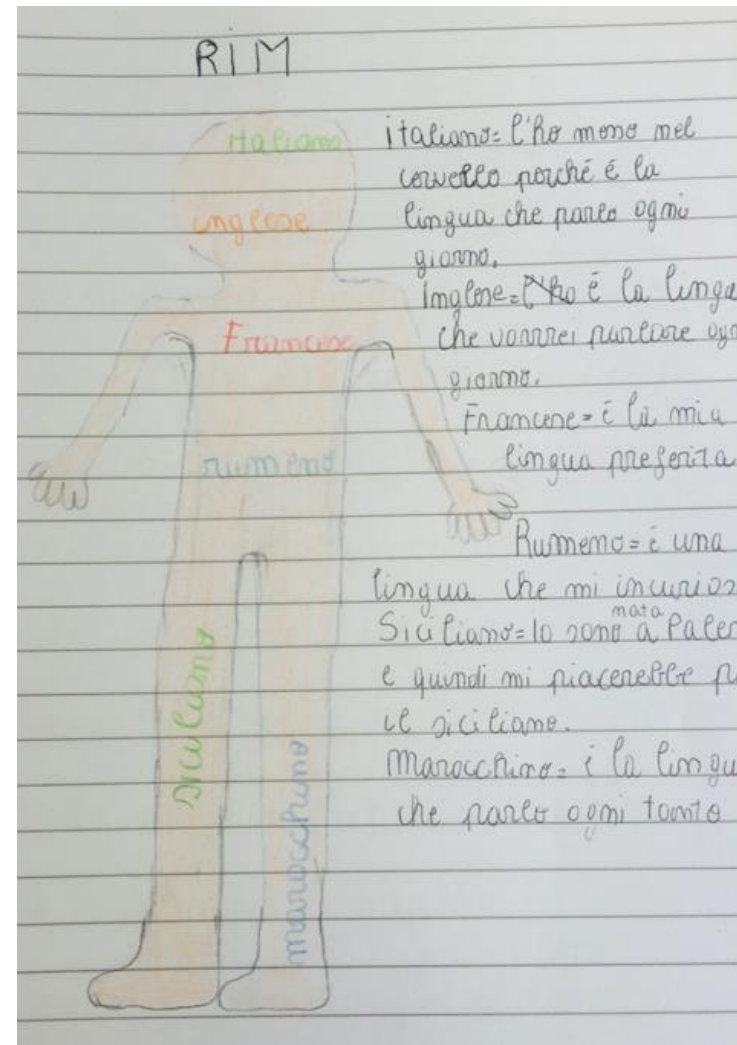 RIM
italiano
inglese
Francese
rumeno
siciliano
marocchino
italiano= l'ho messo nel
cervello perché é la
lingua che parlo ogni
giorno.
Inglese= é la lingua
che vorrei parlare
giorno.
Francese= é la mia
lingua preferita
Rumeno= é una
lingua che mi
Siciliano= Io sono nata a
e quindi mi piacerebbe
il siciliano.
marocchino= é la
che parlo ogni tanto